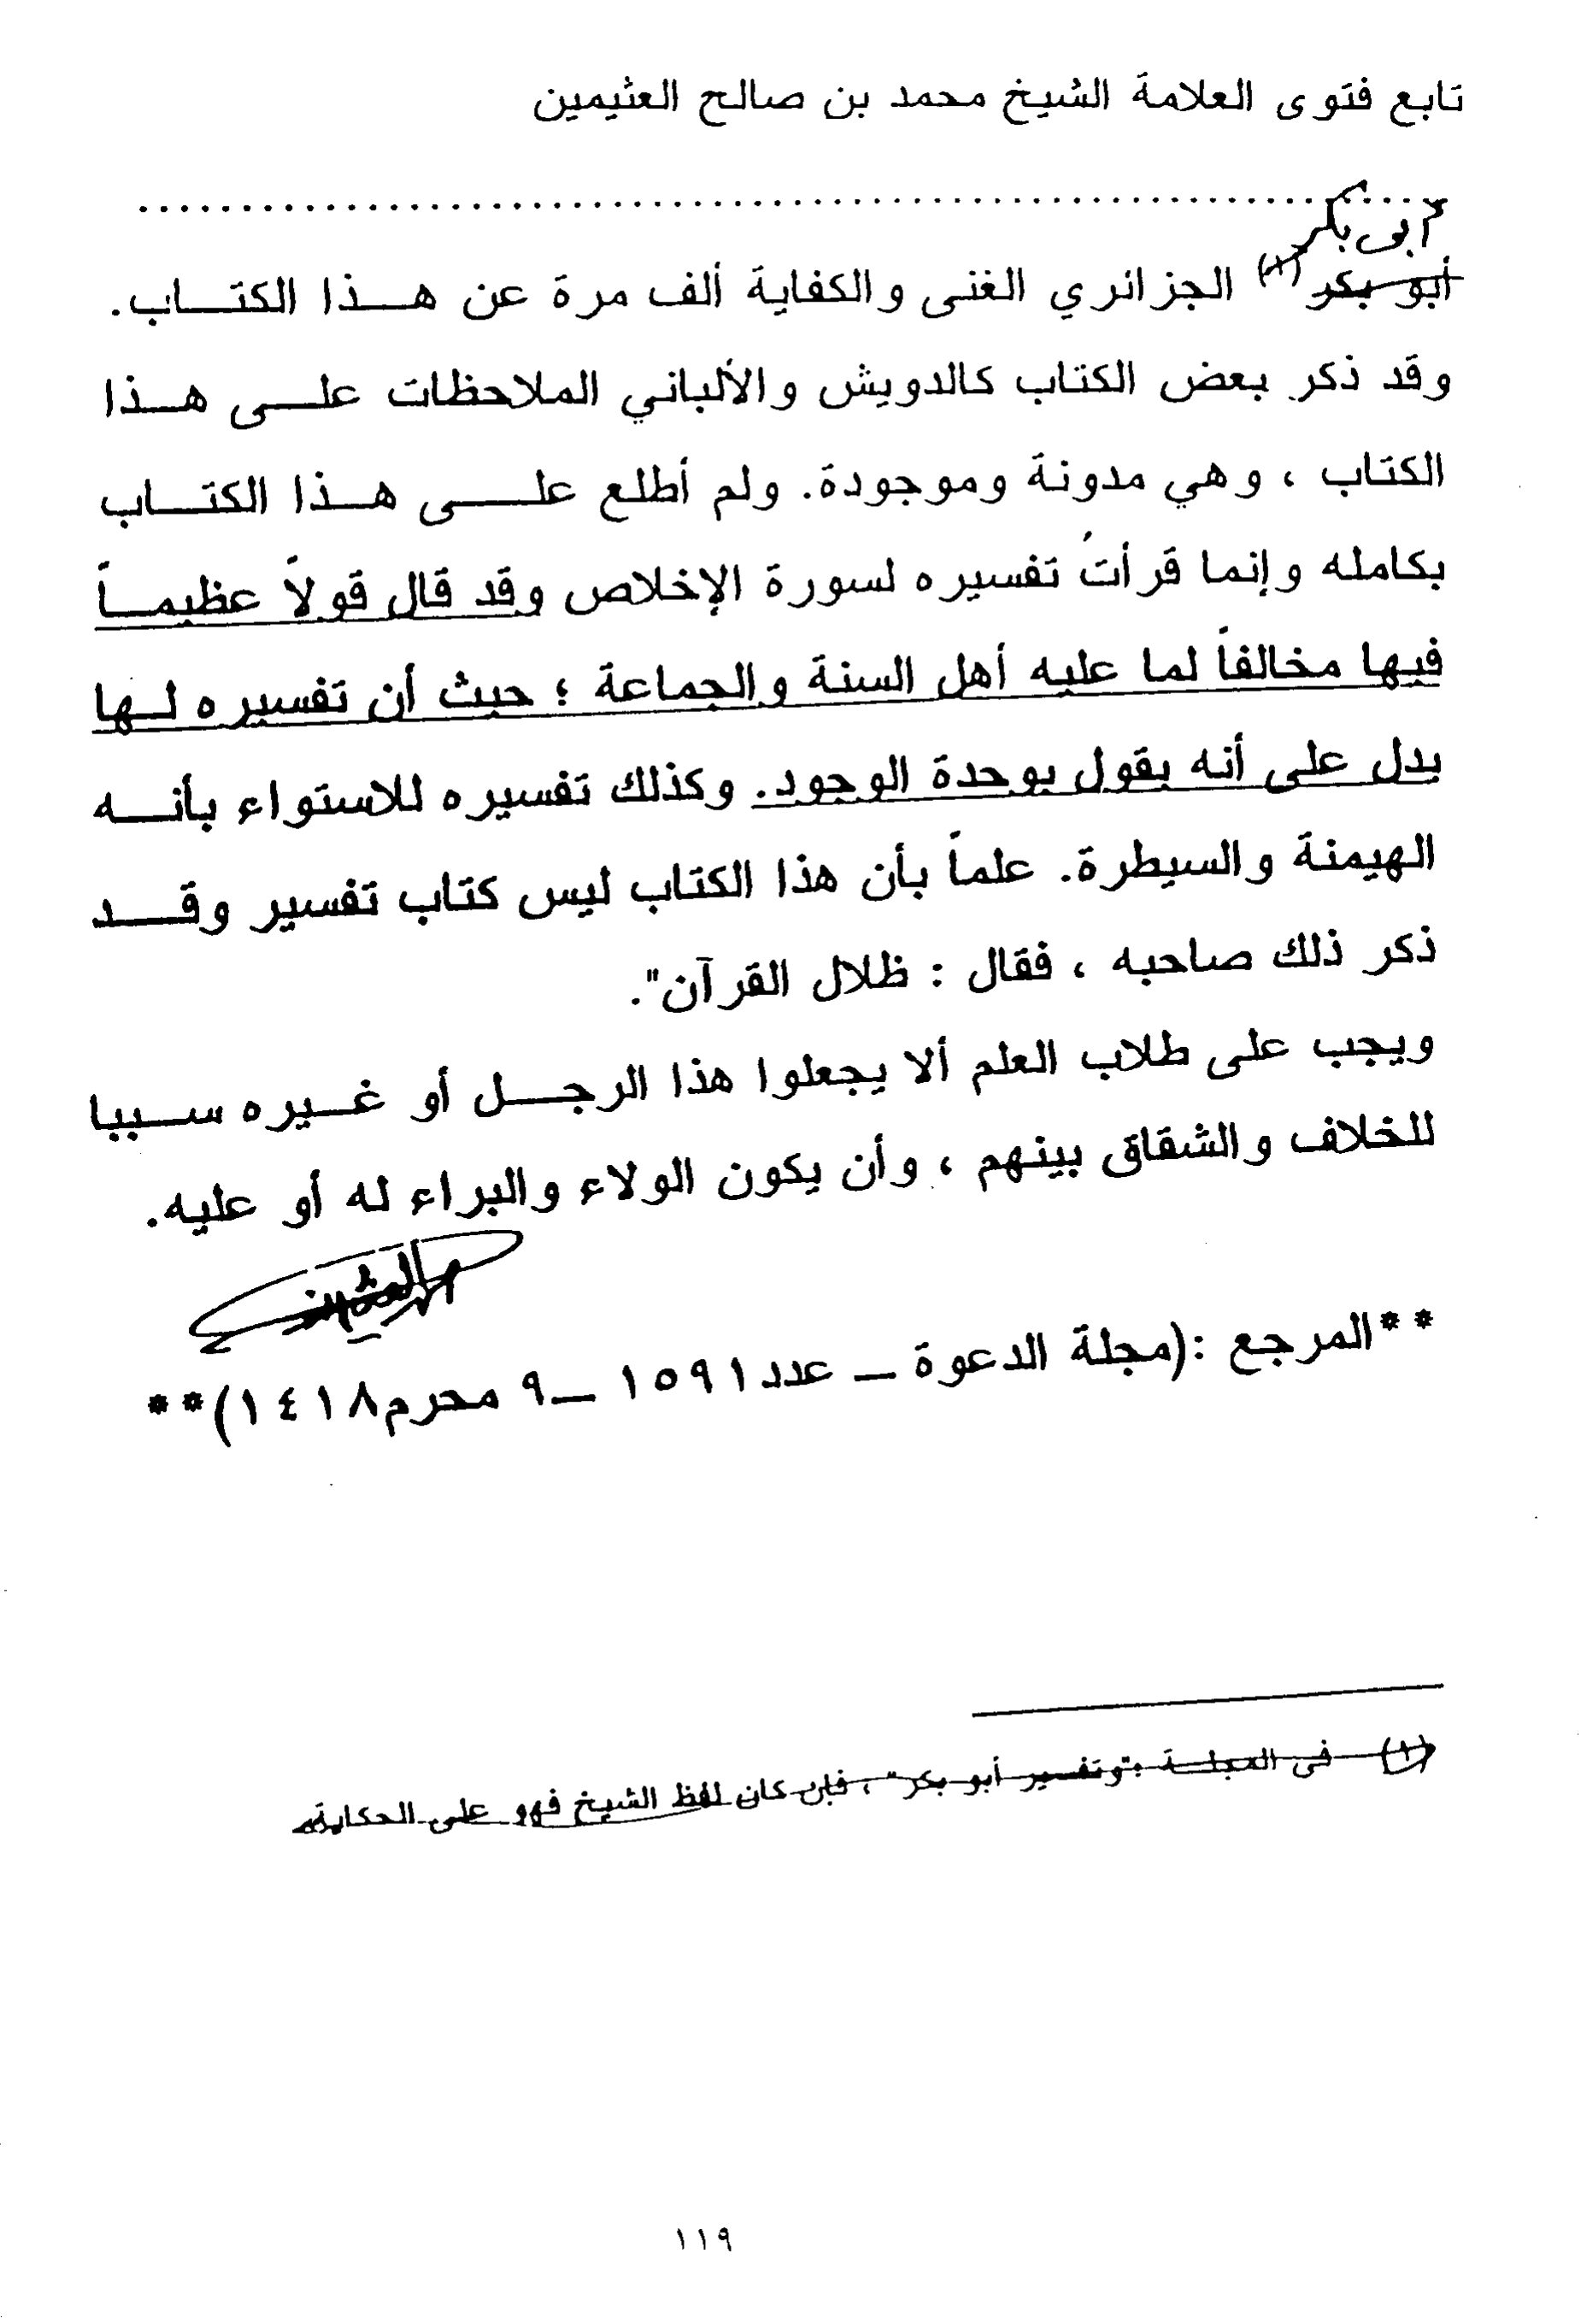 تابع فتوى العلامة الشيخ محمد بن صالح العثيمين
أبي بكر
أبو بكر(١) الجزائري الغنى والكفاية ألف مرة عن هـذا الكتـاب.
وقد ذكر بعض الكتاب كالدويش والألباني الملاحظات علـى هـذا
الكتاب ، وهي مدونة وموجودة. ولم أطلع علـى هـذا الكتـاب
بكامله وإنما قرأتُ تفسيره لسورة الإخلاص وقد قال قولاً عظيمـاً
فيها مخالفاً لما عليه أهل السنة والجماعة ؛ حيث أن تفسيره لـها
يدل على أنه يقول بوحدة الوجود. وكذلك تفسيره للاستواء بأنـه
الهيمنة والسيطرة. علماً بأن هذا الكتاب ليس كتاب تفسير وقـد
ذكر ذلك صاحبه ، فقال : ظلال القرآن".
ويجب على طلاب العلم ألا يجعلوا هذا الرجـل أو غـيره سـببا
للخلاف والشقاق بينهم ، وأن يكون الولاء والبراء له أو عليه.
**المرجع :(مجلة الدعوة – عدد١٥٩١ –٩ محرم١٤١٨)**
(١) في المجلـة :"وتفسير أبو بكر" ، فإن كان لفظ الشيخ فهو على الحكاية.
١١٩